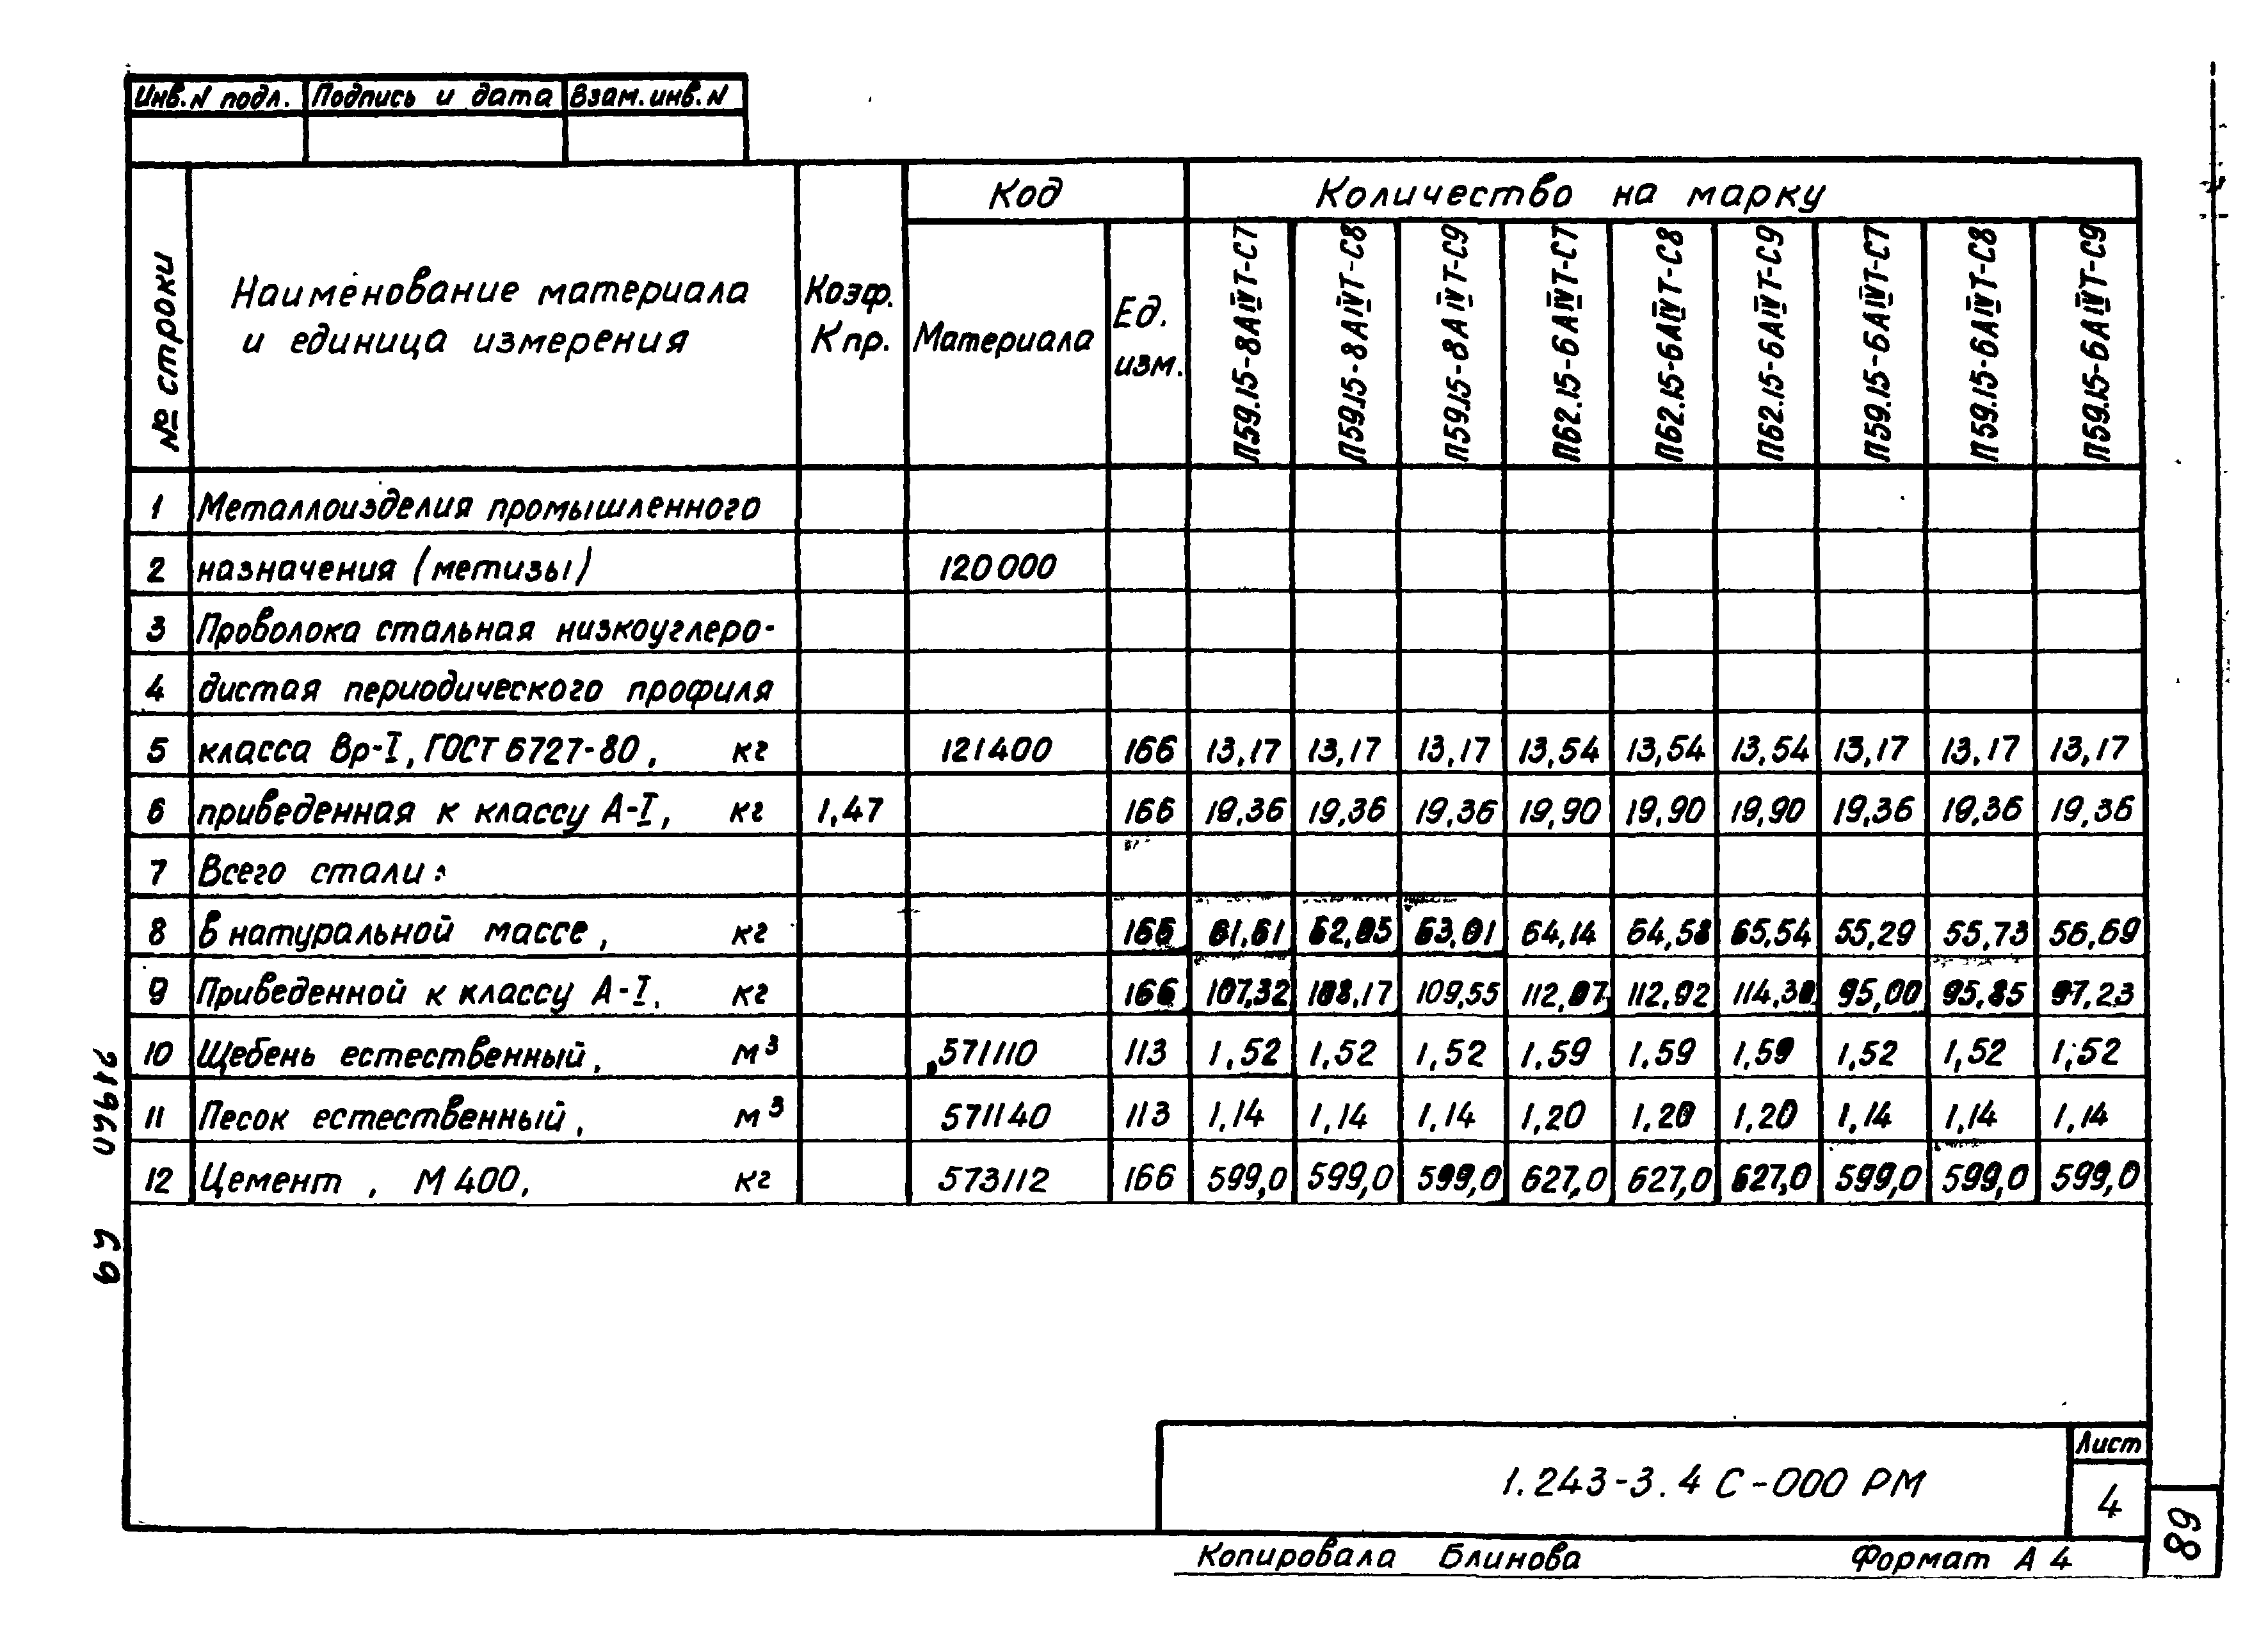 Инв.N подл. Подпись и дата Взам.инв.N
№ строки
Наименование материала
и единица измерения
Коэф.
Кпр.
Код
Материала
Ед.
изм.
Количество на марку
П59.15-8АIVТ-С7
П59.15-8АIVТ-С8
П59.15-8АIVТ-С9
П62.15-6АIVТ-С7
П62.15-6АIVТ-С8
П62.15-6АIVТ-С9
П59.15-6АIVТ-С7
П59.15-6АIVТ-С8
П59.15-6АIVТ-С9
1 Металлоизделия промышленного
2 назначения (метизы) 120000
3 Проволока стальная низкоуглеро-
4 дистая периодического профиля
5 класса Вр-I, ГОСТ 6727-80, кг 121400 166 13,17 13,17 13,17 13,54 13,54 13,54 13,17 13,17 13,17
6 приведенная к классу А-I, кг 1,47 166 19,36 19,36 19,36 19,90 19,90 19,90 19,36 19,36 19,36
7 Всего стали:
8 в натуральной массе, кг 166 61,61 62,05 63,01 64,14 64,58 65,54 55,29 55,73 56,69
9 Приведенной к классу А-I. кг 166 107,32 108,17 109,55 112,07 112,92 114,30 95,00 95,85 97,23
10 Щебень естественный, м³ 571110 113 1,52 1,52 1,52 1.59 1.59 1,59 1,52 1,52 1,52
11 Песок естественный, м³ 571140 113 1,14 1,14 1,14 1,20 1.20 1,20 1,14 1,14 1,14
12 Цемент, М400, кг 573112 166 599,0 599,0 599,0 627,0 627,0 627,0 599,0 599,0 599,0
21966п 69
1.243-3.4 С-000 РМ
Лист
4
Копировала Блинова Формат А4
68